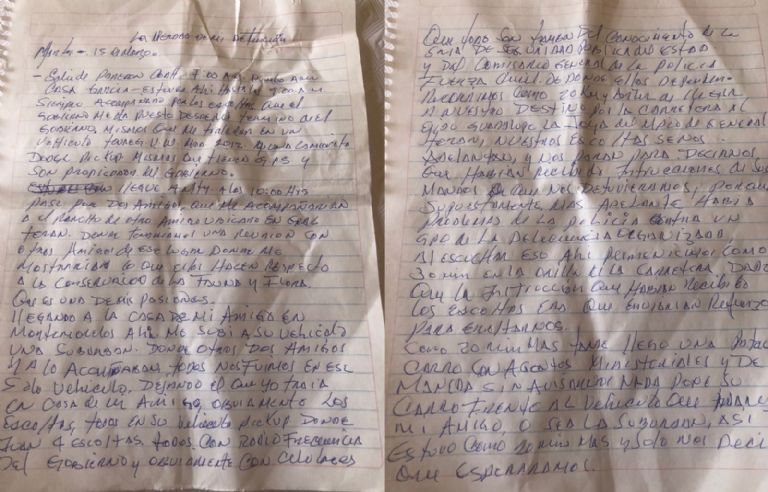 LA MEMORIA DE MI DETENCIÓN
MARTES - 15 DE MARZO.
- SALÍ DE 7:00 AM RUMBO A LA
CASA GARCIA - ESTUVE AHI HASTA LAS 9:00 A.M.
SIEMPRE ACOMPAÑADO POR LOS ESCOLTAS QUE EL
GOBIERNO ME HA PUESTO DESDE QUE TERMINO DEL
GOBIERNO, MISMOS QUE ME TRASLADAN EN UN
VEHICULO 2012 Y UNA CAMIONETA
DODGE PICKUP MISMOS QUE TIENEN GPS Y
SON PROPIEDAD DEL GOBIERNO.
LLEGUE A MTY A LAS 10:00 HRS
PASE POR DOS AMIGOS, QUE ME ACOMPAÑARIAN
A EL RANCHO DE OTRO AMIGO UBICADO EN GRAL
TERAN. DONDE TENDRIAMOS UNA REUNION CON
OTROS AMIGOS DE ESE LUGAR DONDE ME
MOSTRARIAN LO QUE ELLOS HACEN RESPECTO
A LA CONSERVACION DE LA FAUNA Y FLORA.
QUE ES UNA DE MIS PASIONES.
LLEGANDO A LA CASA DE MI AMIGO EN
MONTEMORELOS AHI ME SUBI A SU VEHICULO
UNA SUBURBAN. DONDE OTROS DOS AMIGOS
YA LO ACOMPAÑABAN, TODOS NOS FUIMOS EN ESE
SOLO VEHICULO, DEJANDO EL QUE YO TRAIA
EN CASA DE MI AMIGO, OBVIAMENTE LOS
ESCOLTAS, TODOS EN SU VEHICULO PICKUP DONDE
IVAN 4 ESCOLTAS TODOS CON RADIO FRECUENCIA
DEL GOBIERNO Y OBVIAMENTE CON CELULARES
QUE TODO SON TAMBIEN DEL CONOCIMIENTO DE LA
SRIA DE SEGURIDAD PUBLICA DEL ESTADO
Y DEL COMISARIO GENERAL DE LA POLICIA
FUERZA CIVIL DE DONDE ELLOS DEPENDEN.
COMO 20 KM Y ANTES DE LLEGAR
A NUESTRO DESTINO POR LA CARRETERA AL
EJIDO GUADALUPE LA JOYA DEL MPIO DE GENERAL
TERAN, NUESTROS ESCOLTAS SE NOS
ADELANTAN, Y NOS PARAN PARA DECIRNOS
QUE HABIAN RECIBIDO INTRUCCIONES DE SUS
MANDOS DE QUE NOS DETUVIERAMOS, PORQUE
SUPUESTAMENTE MAS ADELANTE HABIA
PROBLEMAS DE LA POLICIA CONTRA UN
GPO DE LA DELICUENCIA ORGANIZADA
AL ESCUCHAR ESO AHI PERMANECIMOS COMO
30 MIN EN LA ORILLA DE LA CARRETERA, DADO
QUE LA INSTRUCCION QUE HABIAN RECIBIDO
LOS ESCOLTAS ERA QUE ENVIARIAN REFUERZOS
PARA ESCOLTARNOS.
COMO 20 MIN MAS TARDE LLEGO UNA
CARRO CON AGENTES MINISTERIALES Y DE
MANERA SIN AVISARNOS NADA PONE SU
CARRO FRENTE AL VEHICULO QUE
MI AMIGO, O SEA LA SUBURBAN, ASI
ESTUVO COMO 20 MIN MAS Y SOLO NOS DECIAN
QUE ESPERARAMOS.